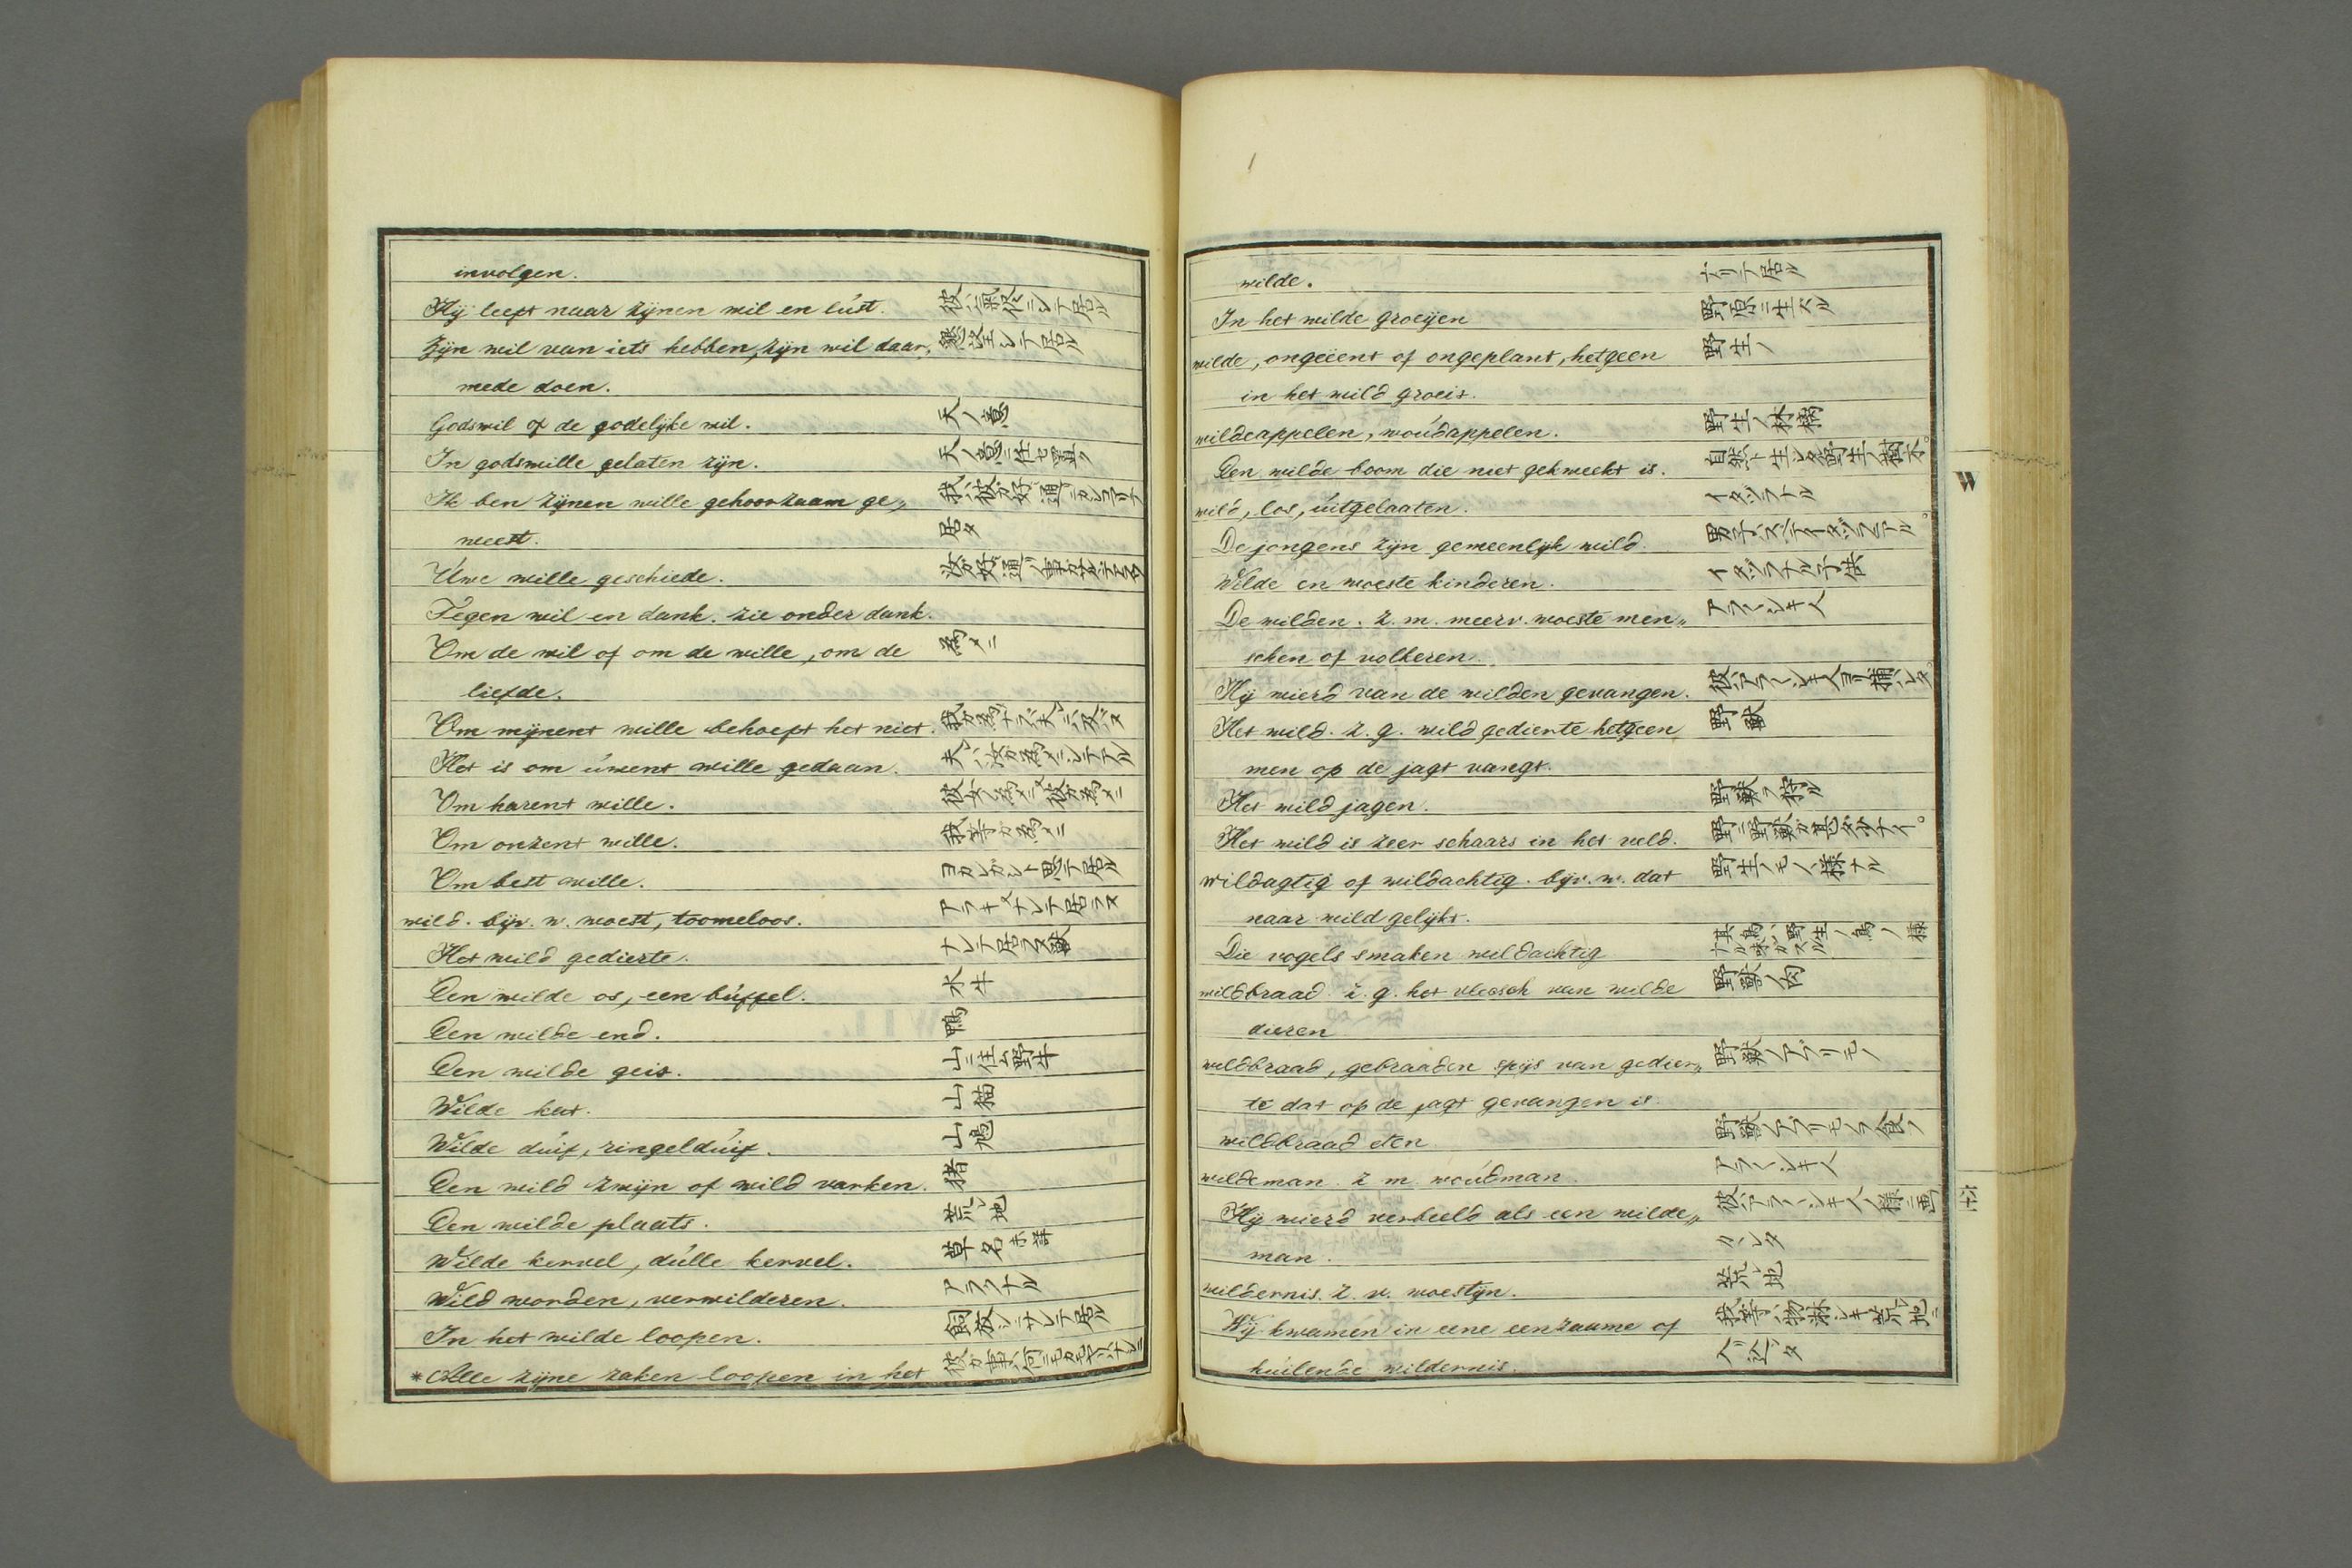 involgen.
Hij leeft naar zijnen wil en lúst. 彼ハ氣侭ニシテ居ル
Zijn wil van iets hebben, zijn wil daar, シテ居ル
mede doen.
Godswil of de godelijke wil. 天ノ意
In godswille gelaten zijn. 天ノ意ニ任セ置ク
Ik ben zijnen wille gehoorzaam ge„ 我ハ彼ガ好ミ通リニ
weest. 居タ
Uwe wille geschiede. 汝ガ好ミ通リノ事ガ
Tegen wil en dank. zie onder dank.
Om de wil of om de wille, om de 為メニ
liefde.
Om mijnent wille behoeft het niet. 我ガ為ナラバ夫ニハ及バヌ
Het is om úwent wille gedaan. 夫ハ汝ガ為メニシテアル
Om harent wille. 彼女ノ為メニ 彼ガ為メニ
Om onzent wille. 我等ガ為メニ
Om best wille. ヨカレカシト思テ居ル
wild. bijv. w. woest, toomeloos. アラキ 又ナレテ居ラヌ
Het wild gedierte. ナレテ居ラヌ獣
Een wilde os, een búffel. 水牛
Een wilde end. 鴨
Een wilde geis. 山ニ住ム野牛
Wilde kat. 山猫
Wilde dúif, ringeldúif. 山鳩
Een wild zwijn of wild varken. 猪
Een wilde plaats. 荒レ地
Wilde kervel, dúlle kervel. 草名 未詳
Wild worden, verwilderen. アラクナル
In het wilde loopen. 飼放シニナレテ居ル
* Alle zijne zaken loopen in het 彼ガ事ハ何ニモカモ
wilde. ナリテ居ル
In het wilde groeijen 野原ニ生ズル
wilde, ongeëent of ongeplant, hetgeen 野生ノ
in het wild groeit.
wildeappelen, woúdappelen. 野生ノ林檎
Een wilde boom die niet gekweekt is. 自然ト生シタ野生ノ樹木。
wild, los, úitgelaaten. イタヅラナル
De jongens zijn gemeenlijk wild. 男子ハスベテイタヅラデアル。
Wilde en woeste kinderen. イタヅラナル子供
De wilden. z. m. meerv. woeste men„ アラ〱シキ人
schen of volkeren.
Hij wierd van de wilden gevangen. 彼ハアラ〱シキ人ヨリ捕ハレタ。
Het wild. z. g. wild gedierte hetgeen 野獣
men op de jagt vangt.
Het wild jagen. 野獣ヲ狩ル
Het wild is zeer schaars in het veld. 野ニ野獣ガ甚ダ少ナイ。
wildagtig of wildachtig. bijv. w. dat 野生ノモノノ様ナル
naar wild gelijkt.
Die vogels smaken wildachtig 其鳥ハ野生ノ鳥ノ様ナル味ガスル
wildbraad z. g. het vleesch van wilde 野獣ノ肉
dieren
wildbraad, gebraaden spijs van gedier„ 野獣ノアブリモノ
te dat op de jagt gevangen is.
wildbraad eten 野獣ノアブリモノヲ食フ
wildeman z m. woúdman. アラ〱シキ人
Hij wierd verbeeld als een wilde„ 彼ハアラ〱シキ人ノ様ニ画
man. カレタ
wildernis. z. v. woestijn. 荒レ地
Wij kwamen in eene eenzaame of 我等ハ物淋シキ荒レ地ニ
húilende wildernis. 入リ込ンダ
W